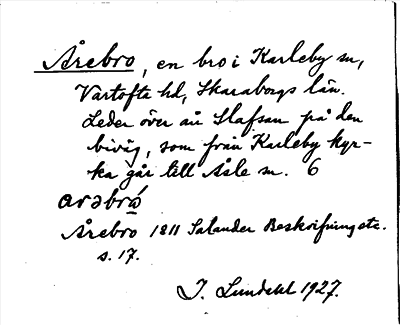 Årebro, en bro i Karleby sn,
Vartofta hd, Skaraborgs län.
Leder över ån Slafsan på den
biväg, som från Karleby kyr-
ka går till Åsle sn. 6
arəbrǫ́
Årebro 1811 Salander Beskrifning etc.
s. 17.
J. Lundahl 1927.